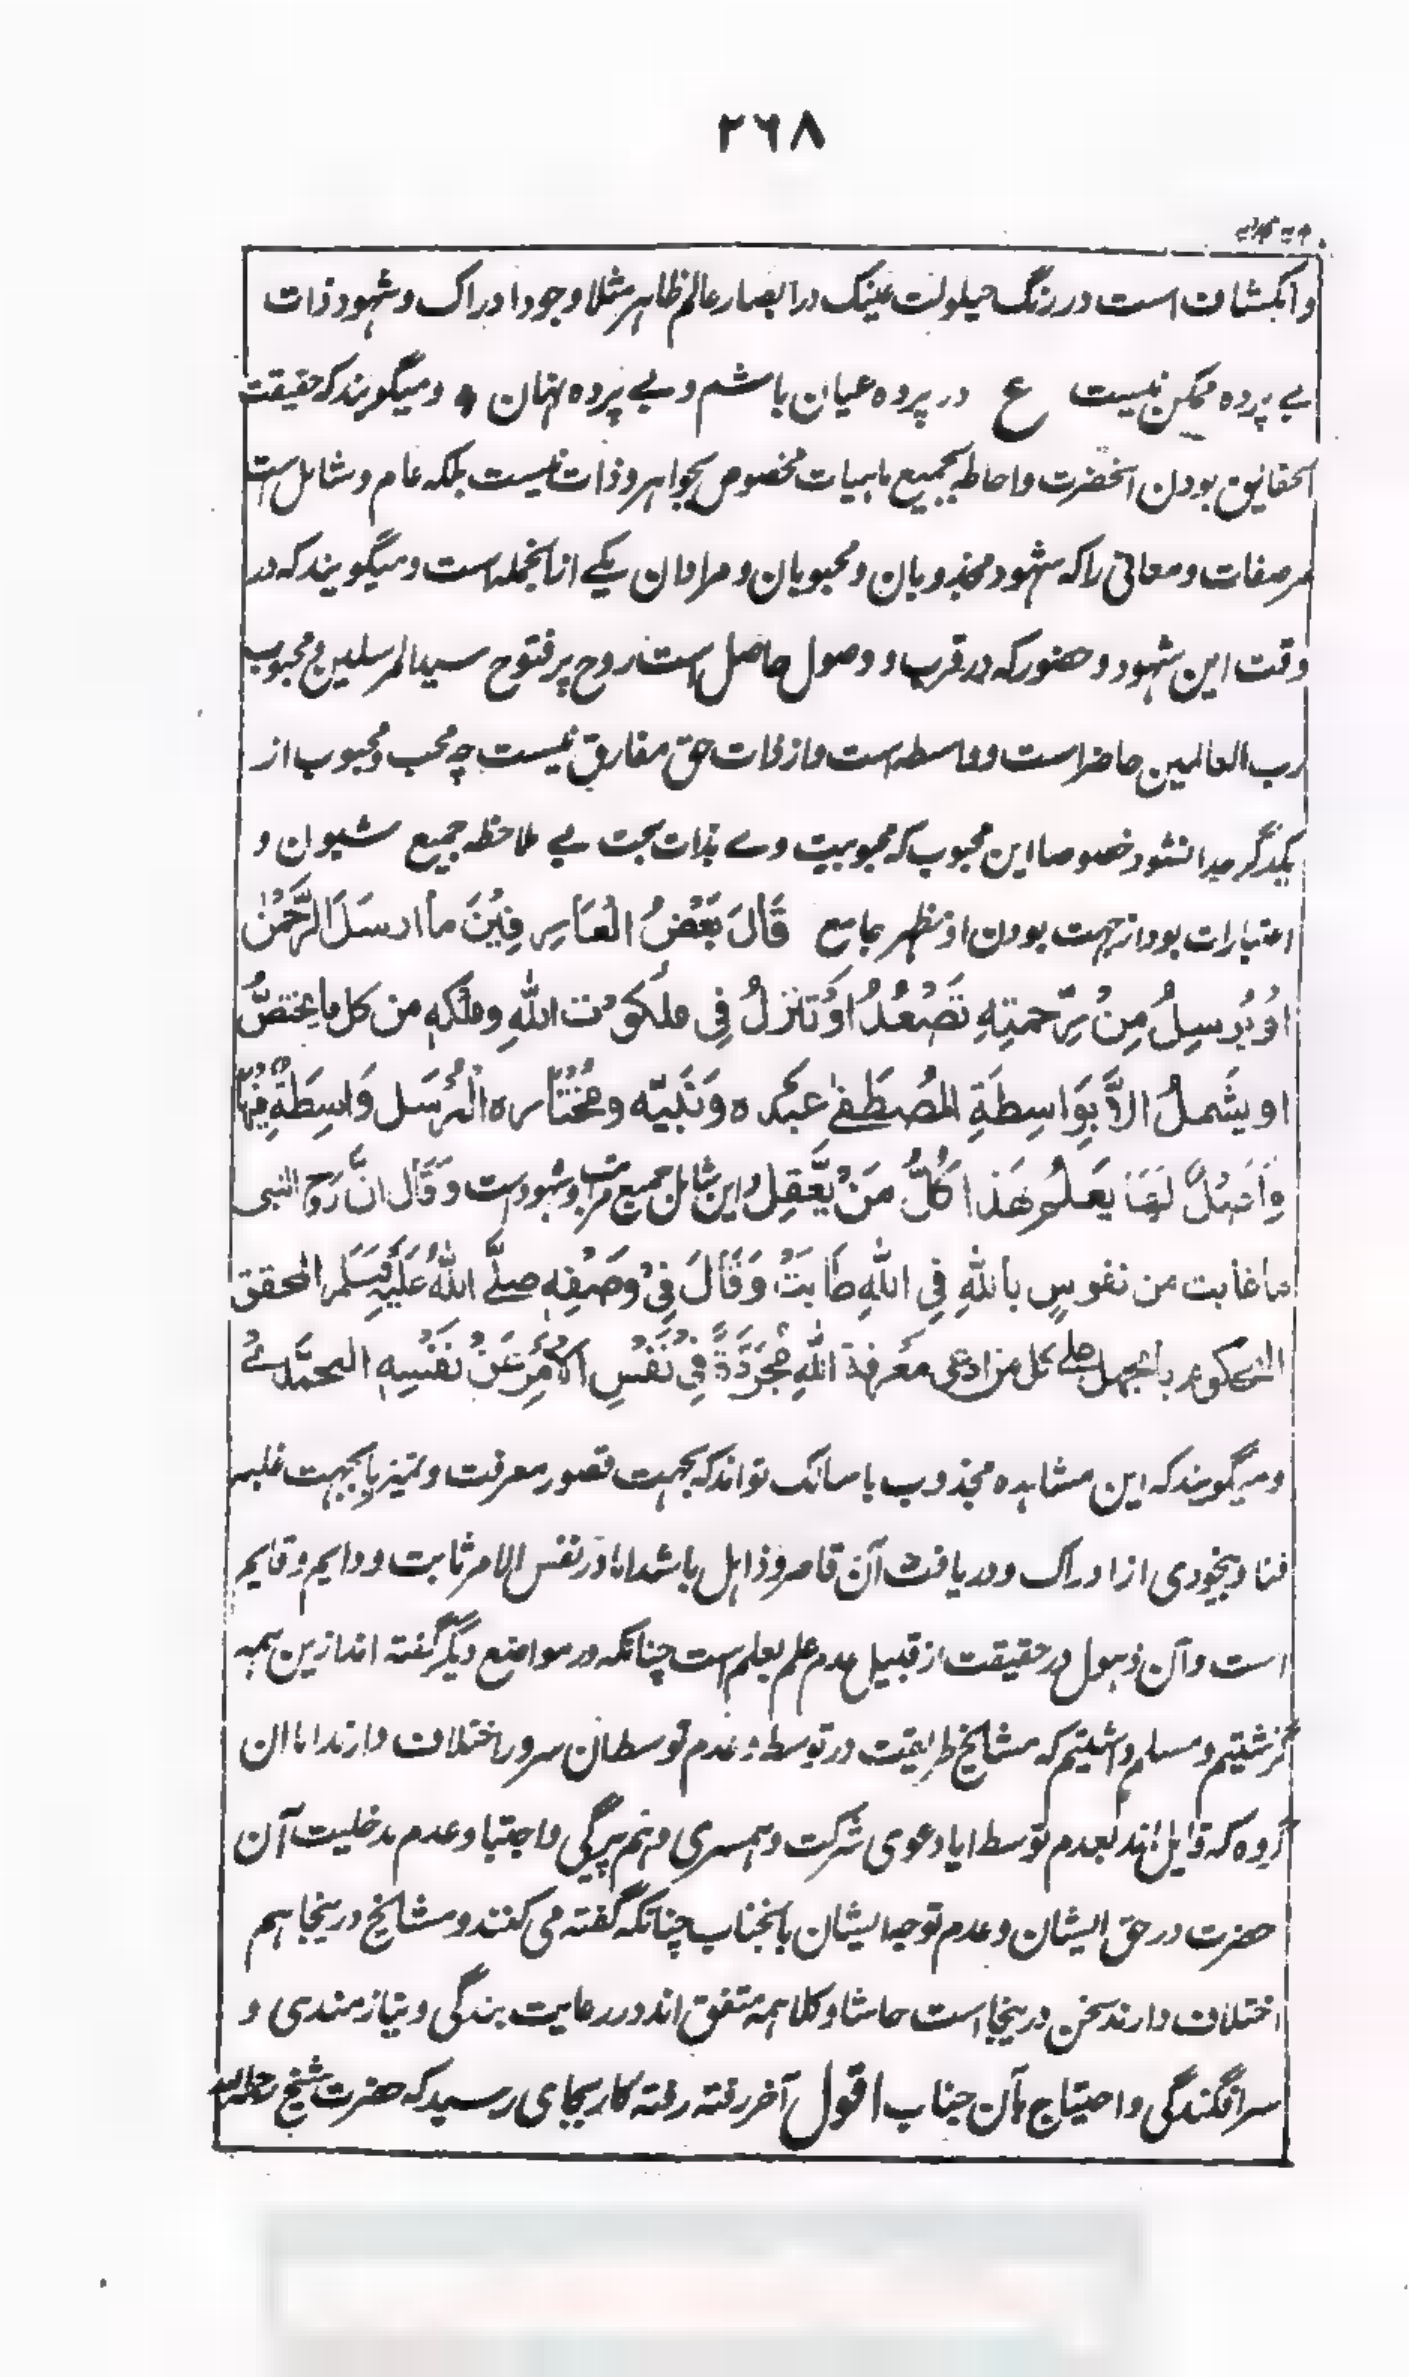 ۲۶۸
وانکشاف است در رنگ حیلولت عینک در ابصار عالم ظاهر مثلا وجود ادراک و شهود ذات
بے پرده ممکن نیست ع در پرده عیان باشم و بے پرده نهان و میگویند که حقیقت
الحقایق بودن آنحضرت و احاطه بجمیع ماهیات مخصوص بجواهر و ذات نیست بلکه عام و شامل است
مر صفات و معانی را که شهود مجذوبان و محبوبان و مرادان یکے ازانجمله است و میگویند که در
وقت این شهود و حضور که در قرب و وصول حاصل است روح پر فتوح سید المرسلین و محبوب
رب العالمین حاضر است و واسطه است و از ذات حق مفارق نیست چه محب و محبوب از
یکدگر جدا نشود خصوصا این محبوب که محبوبیت وے بذات بحت بے ملاحظه جمیع شیون و
اعتبارات بود از جهت بودن او مظهر جامع قَالَ بَعْضُ الْعَارِفِيْنَ ما ارسَلَ الرَّحْمٰن
اَوْ يُرسِلُ مِنْ رَّحمتِهٖ تَصْعُدُ اَوْ تَنْزِلُ فِي ملَكُوْت اللهِ وملْكهٖ من كل ما يختصُّ
او يشَملُ الاَّ بِوَاسِطَةِ المُصْطَفٰے عبدہ وَنَبِيّه ومُخْتَاره الْمُرْسَل وَاسِطَةٌ فِيْهَا
وَاَصْلٌ لَهَا يَعلمُ هَذا كُلُّ مَنْ يَّعْقِلُ و این شامل جمیع مراتب و شهودست وَ قَالَ انَّ رَوح النبی
ما غابت من نفوسٍ باللهِ فِي اللهِ طَابَتْ وَقَالَ فِيْ وَصْفِهٖ صلَّے اللهُ عَلَيْهِ وَسَلَّم المحقق
بالجهل علے كل من ادعی معرفة اللهِ مُجَرَّدَةً فِيْ نَفْسِ الاَمْرِ عَنْ نَفْسِهٖ المحمَّدی
و میگویند که این مشاهده مجذوب یا سالک تواند که بجهت قصور معرفت و تمیز یا بجهت غلبه
فنا و بیخودی از ادراک و دریافت آن قاصر و ذاهل باشد اما در نفس الامر ثابت و دایم و قایم
است و آن ذهول در حقیقت از قبیل عدم علم بعلم است چنانکه در مواضع دیگر گفته اند ازین همه
گذشتیم و مسلم داشتیم که مشایخ طریقت در توسط و عدم توسط آن سرور اختلاف دارند اما ان
گروه که قایل اند بعدم توسط ایا دعوی شرکت و همسری و هم پیرگی و اجتبا و عدم مدخلیت آن
حضرت در حق ایشان و عدم توجه ایشان بآنجناب چنانکه گفته می کنند و مشایخ درینجا هم
اختلاف دارند سخن درینجا است حاشا و کلا همه متفق اند در رعایت بندگی و نیازمندی و
سرافگندگی و احتیاج بآن جناب اقول آخر رفته رفته کار بجای رسید که حضرت شیخ